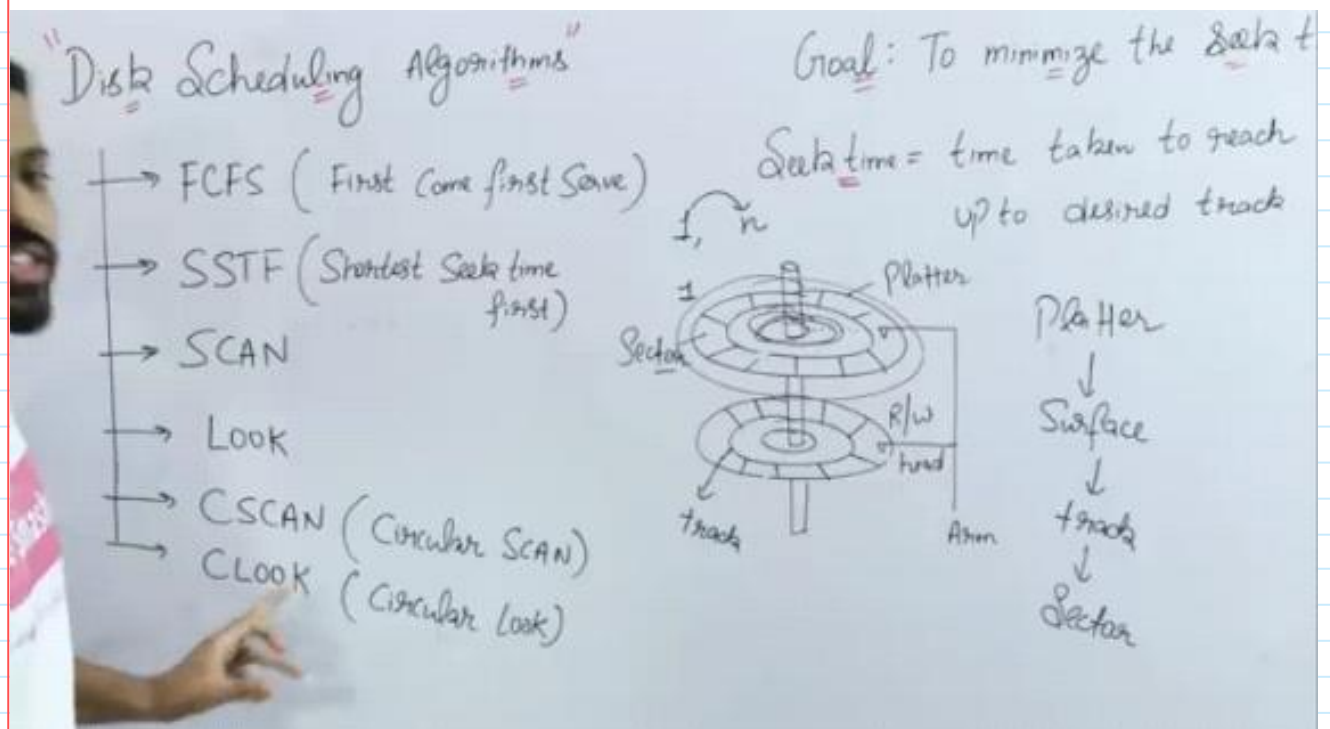 "Disk Scheduling Algorithms"
FCFS (First Come first Serve)
SSTF (Shortest Seek time
first)
SCAN
LOOK
CSCAN (Circular SCAN)
CLOOK (Circular Look)
Goal: To minimize the Seek t
Seek time = time taken to reach
up to desired track
1, n
1
Platter
Sector
R/W
head
track
Arm
Platter
Surface
track
Sector